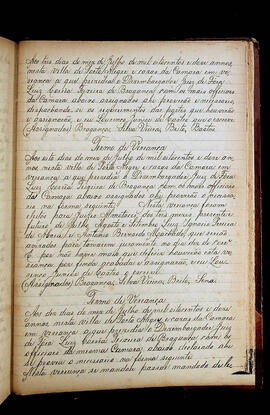 Aos tres dias do mez de Julho de mil oitocentos e doze annos,
nesta villa de Porto Alegre e cazas da Camara em ve
reança a que prezidio o Dezembargador Juiz de Fora
Luiz Corrêa Teixeira de Bragança com os mais officiaes
da Camara abaixo assignados ahi proverão o
despachando se os requerimentos das partes que houverão
e assignarão e eu Lourenço Junior de Castro que o escrevi
(Assignados) Bragança, Silva, Vieira, Brito, Bastos
Termo de Vereança
Aos sete dias do mez de Julho de mil oitocentos e doze an
nos, nesta villa de Porto Alegre e cazas da Camara em
vereança a que prezidio o Dezembargador Juiz de Fora
Luiz Corrêa Teixeira de Bragança com os mais officiaes
da Camara abaixo assignados ahi proverão o necessa
rio na forma seguinte // Nesta vereança foram
eleitos para Juizes Almotacés dos tres mezes
futuro de Julho Agosto e Setembro Luiz Ignacio Pereira
de Abreu e Antonio Bernardo Machado, que
avizados para tomarem juramento no dia dez do corr.e
E por não haver mais que
reança por finda acabada e assignarão, e eu Lou
renço Junior de Castro o escrevi
(Assignados) Bragança, Silva, Vieira, Brito, Lima.
Termo de Vereança
Aos dez dias do mez de Julho de mil oitocentos e doze
annos, nesta villa de Porto Alegre e cazas da Camara
em vereança a que prezidio o Dezembargador Juiz
de Fora Luiz Corrêa Teixeira de Bragança com os
officiaes da mesma Camara, abaixo declarados ahi
se proveo o necessario na forma seguinte
Nesta vereança se mandou passar mandado de